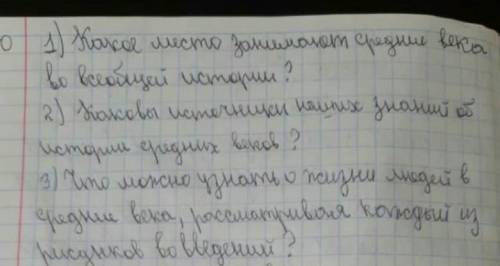 1) Какое место занимают средние века
во всеобщей истории?
2) Каковы источники наших знаний об
истории средних веков?
3) Что можно узнать о жизни людей в
средние века, рассматривая каждый из
рисунков во введений?